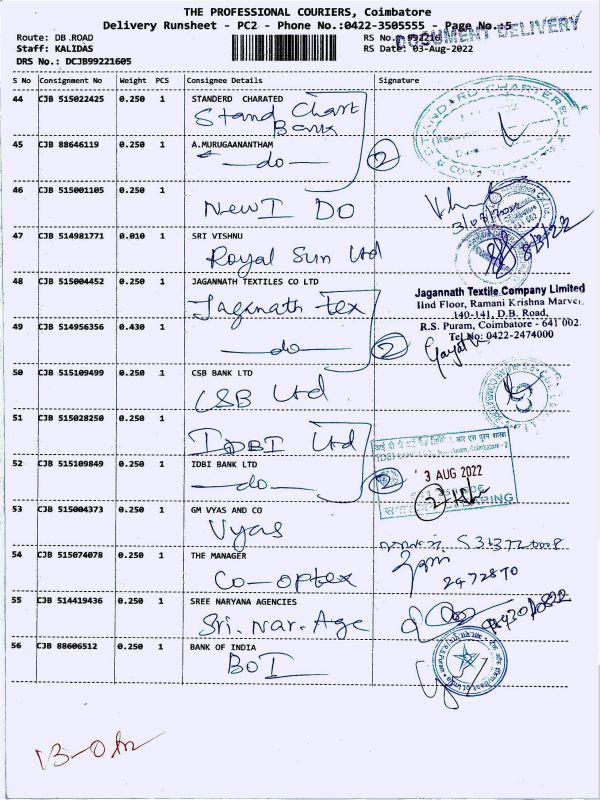 THE PROFESSIONAL COURIERS, Coimbatore
Delivery Runsheet - PC2 - Phone No.:0422-3505555 - Page No.:5
DOCUMENT DELIVERY
Route: DB ROAD
RS No.: 992216
Staff: KALIDAS
RS Date: 03-Aug-2022
DRS No.: DCJB99221605
S No Consignment No Weight PCS Consignee Details Signature
44 CJB 515022425 0.250 1 STANDERD CHARATED
Stand Chart
Bank
STANDARD CHARTERED
45 CJB 88646119 0.250 1 A.MURUGAANANTHAM
-do- 2
46 CJB 515001105 0.250 1
New I DO
47 CJB 514981771 0.010 1 SRI VISHNU
Royal Sun Ltd
48 CJB 515004452 0.250 1 JAGANNATH TEXTILES CO LTD
Jaganath tex
Jagannath Textile Company Limited
IInd Floor, Ramani Krishna
140-141, D.B. Road,
R.S. Puram, Coimbatore - 641 002.
Tel No: 0422-2474000
49 CJB 514956356 0.430 1
-do- 2
50 CJB 515109499 0.250 1 CSB BANK LTD
CSB Ltd
51 CJB 515028250 0.250 1
IDBI Ltd
52 CJB 515109849 0.250 1 IDBI BANK LTD
-do- 2
3 AUG 2022
2
53 CJB 515004373 0.250 1 GM VYAS AND CO
Vyas
54 CJB 515074078 0.250 1 THE MANAGER
Co-optex
2472870
55 CJB 514419436 0.250 1 SREE NARYANA AGENCIES
Sri. Nar. Age
56 CJB 88606512 0.250 1 BANK OF INDIA
BOI